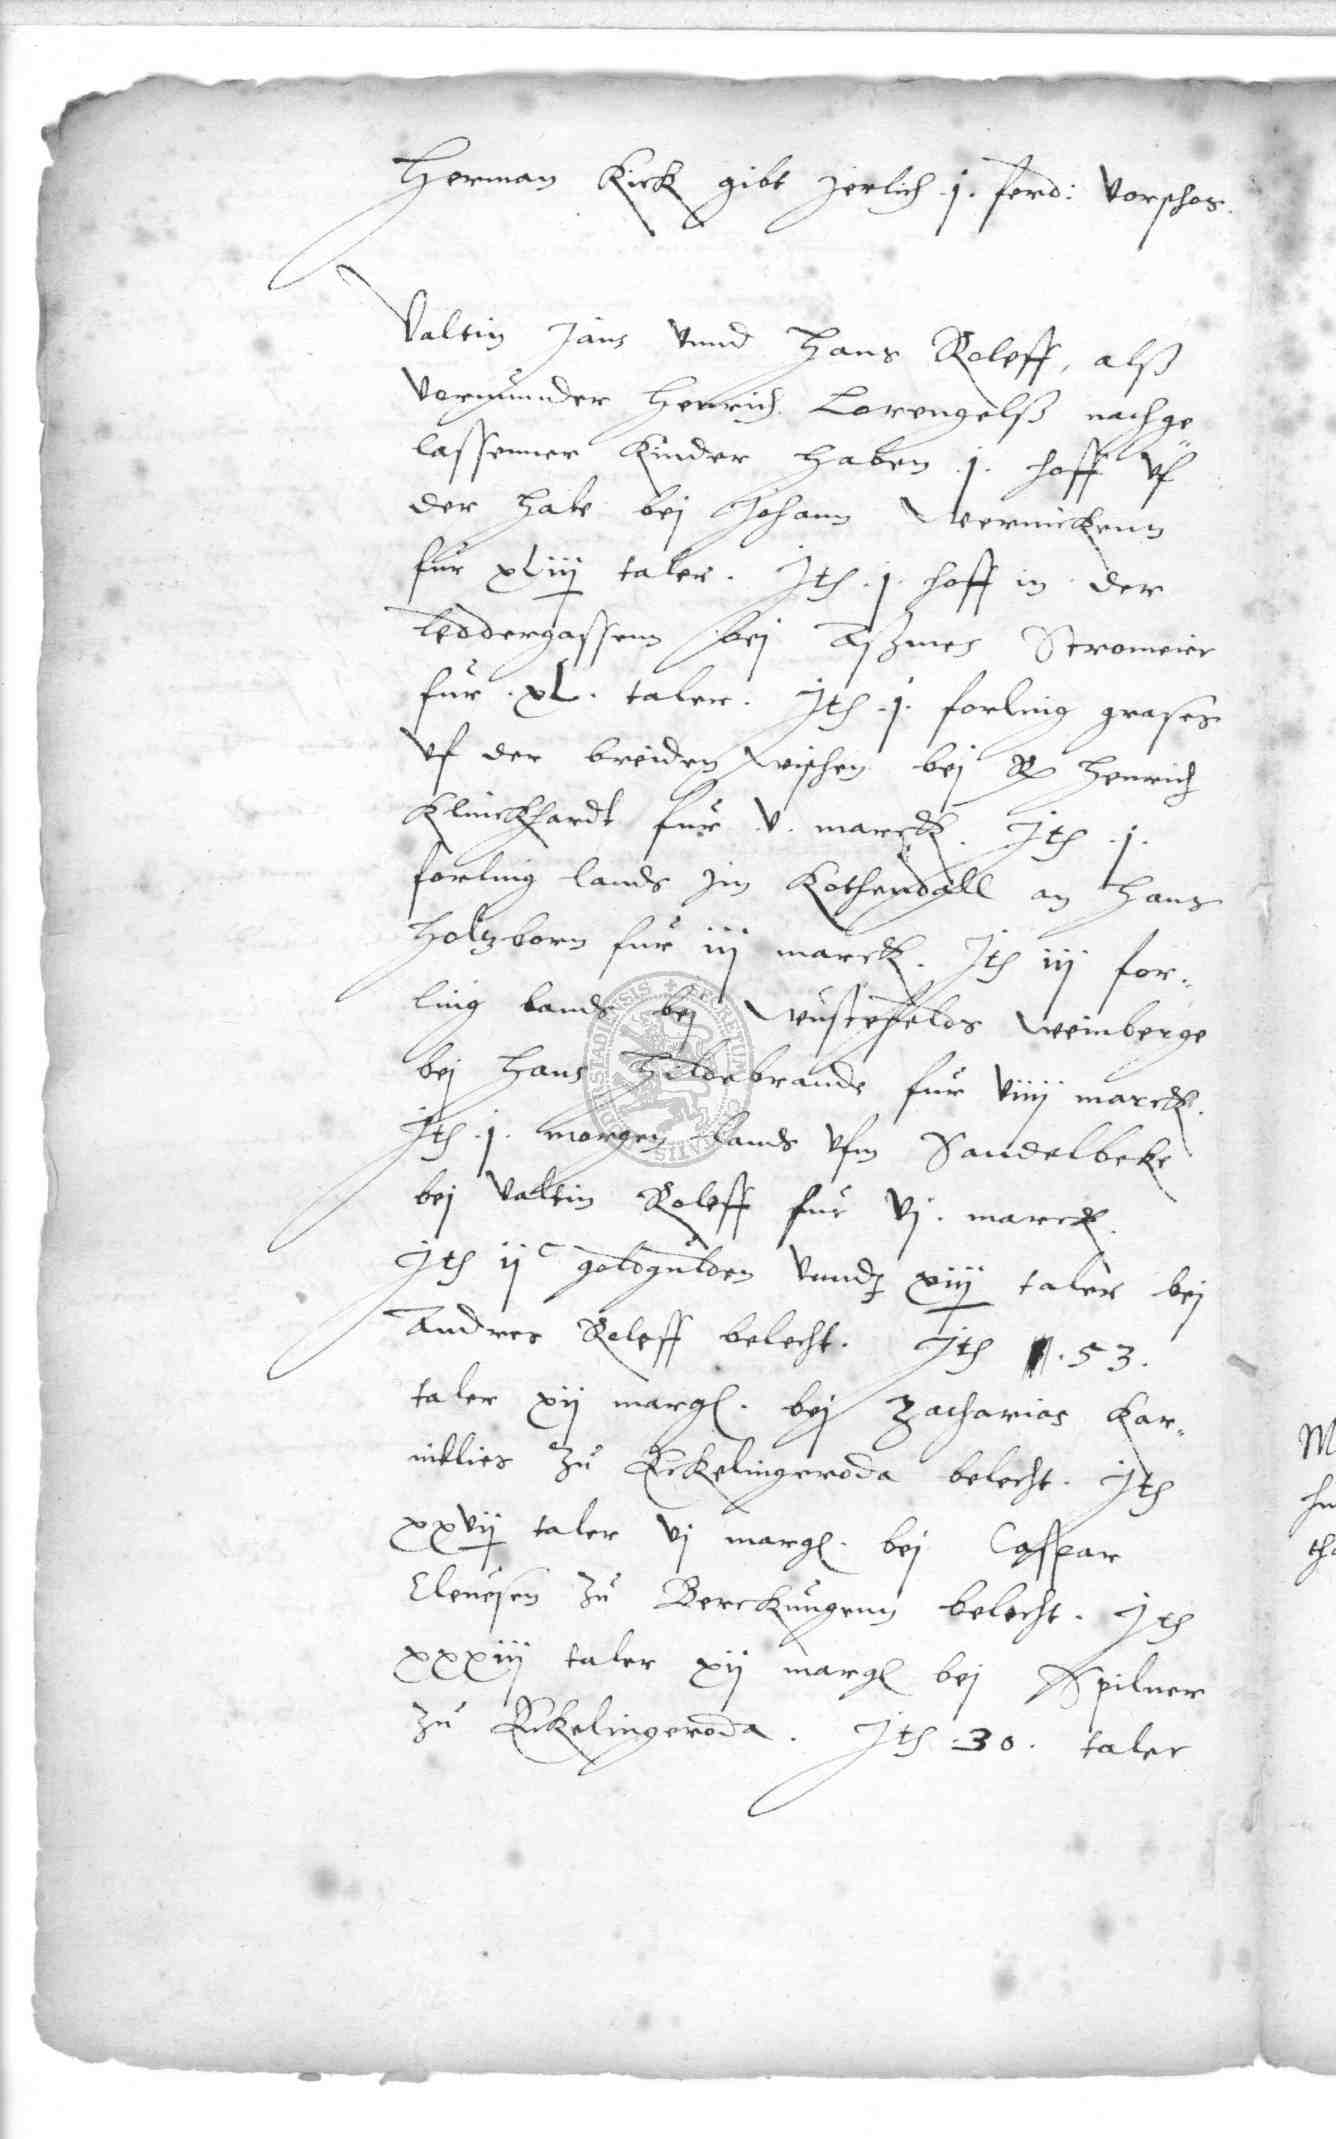 Herman Kirck gibt jerlich .j. ferd: vorschos.
Valtin Jans vnnd Hans Roleff, alß
vormunder Henrich Lorengelß nachge
lassenner Kinder haben .j. hoff vf
der Hale bej Johann Wernickenn
fur xLiij taler. Jth .j. hoff in der
Leddergassenn bej Aßmes Stromeier
fur .xL. taler. Jth .j. forling grases
vf der breiden wischen bej Henrich
Klinckhardt fur .v. marck. Jth .j.
forling lands jm Kothendall an Hans
Holtzborn fur iij marck. Jth iij for=
ling lands bej Wustefelds weinberge
bej Hans Hildebrande fur viiij marck.
Jth .j. morgen lands vfm Sandelbeke
bej Valtin Roleff fur vj. marck.
Jth ij c goldgulden vnnd xiij taler bej
Andres Roleff belecht. Jth .53.
taler xij margl. bej Zacharias Kar=
niklies zu Eckelingeroda belecht. Jth
xxvij taler vj margl. bej Caspar
Clenesen zu Berckungenn belecht. Jth
xxxiij taler xij margl bej Spilner
zu Eckelingeroda. Jth .30. taler
SECRETUM